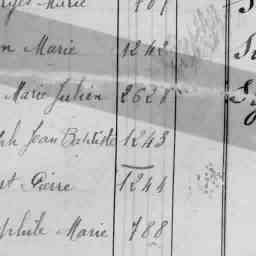 Marie 707
n Marie 1242
Marie Julien 2628
ph Jean Baptiste 1243
st Pierre 1244
phile Marie 788